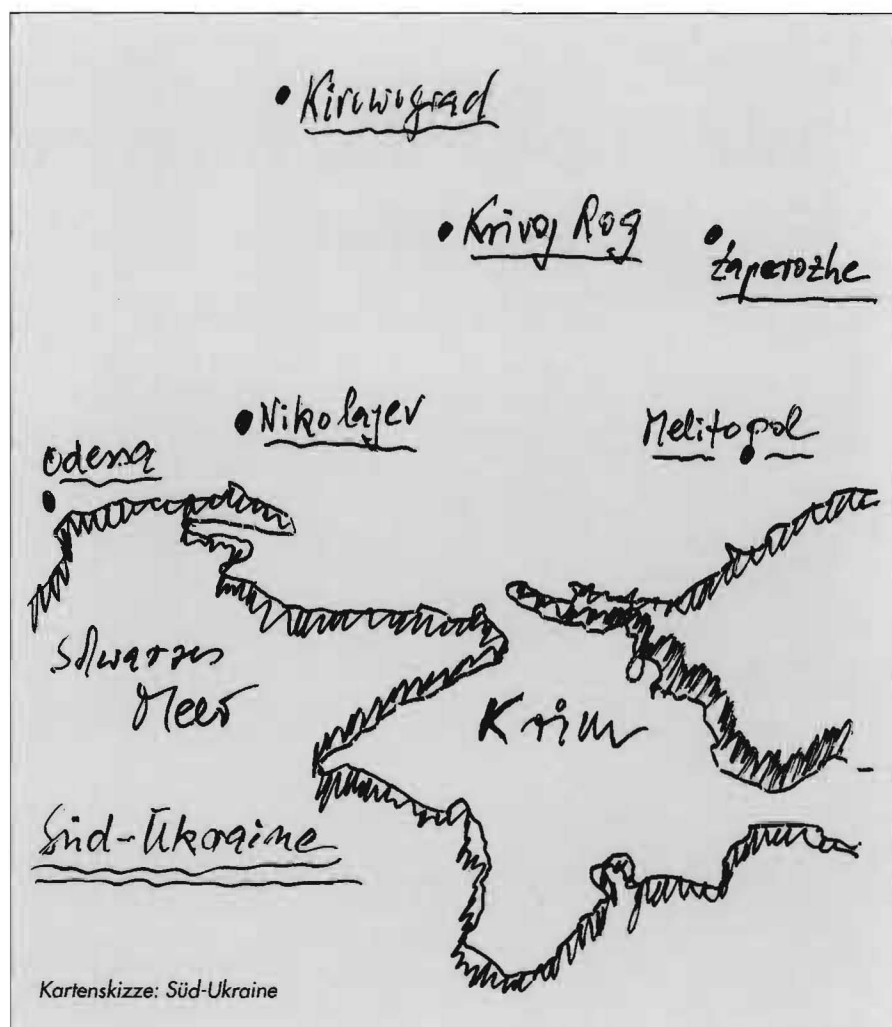 Kirowograd
Krivoj Rog
Zaperozhe
Nikolajev
Melitopol
Odessa
Schwarzes
Meer
Krim
Süd-Ukraine
Kartenskizze: Süd-Ukraine